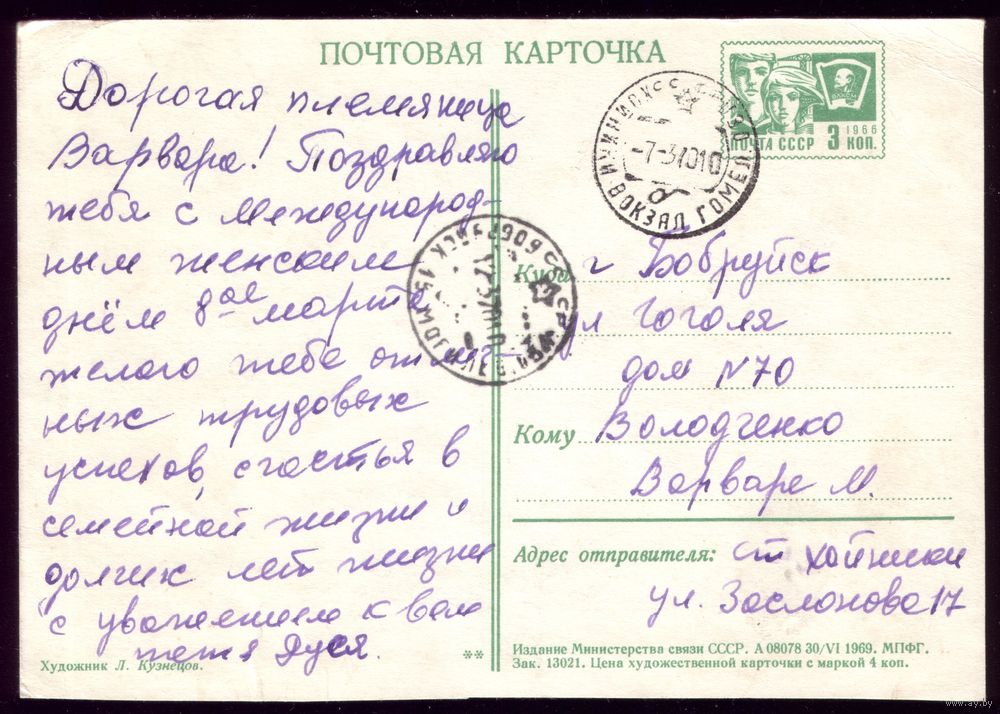 ПОЧТОВАЯ КАРТОЧКА
Дорогая племяница
Варвара! Поздравляю
тебя с Международ-
ным женским
днём 8ое марта
желаю тебе отлич-
ных трудовых
успехов, счастья в
семейной жизни и
долгих лет жизни
с уважением к вам
тётя Дуся.
Художник Л. Кузнецов.
**
1966
ПОЧТА СССР 3 КОП.
-7-37010
ВОКЗАЛ ГОМЕЛ
БОБРУЙСК
Куда г Бобруйск
ул Гоголя
дом N 70
Кому Володченко
Варваре М.
Адрес отправителя: ст Хойники
ул. Заслонова 17
Издание Министерства связи СССР. А 08078 30/VI 1969. МПФГ.
Зак. 13021. Цена художественной карточки с маркой 4 коп.
www.ay.by